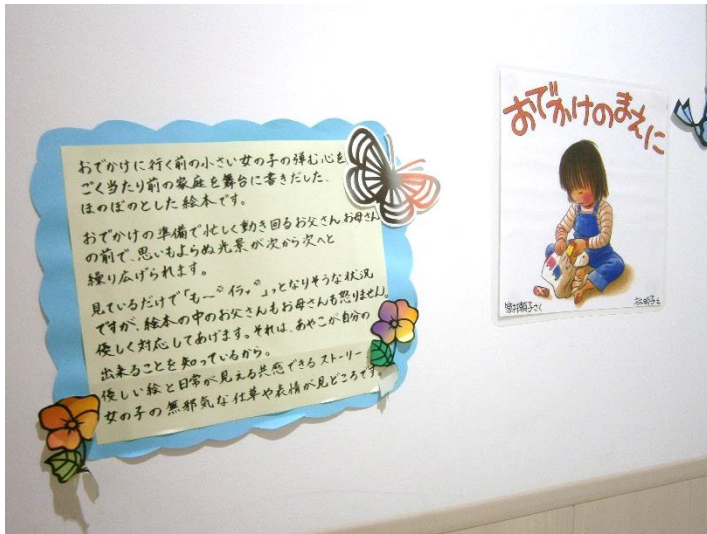 おでかけに行く前の小さい女の子の弾む心を
ごく当たり前の家庭を舞台に書きだした、
ほのぼのとした絵本です。
おでかけの準備で忙しく動き回るお父さんお母さん
の前で、思いもよらぬ光景が次から次へと
繰り広げられます。
見ているだけで「もー゛イラッ゛」っとなりそうな状況
ですが、絵本の中のお父さんもお母さんも怒りません。
優しく対応してあげます。それは、あやこが自分の
出来ることを知っているから。
優しい絵と日常が見える共感できるストーリー
女の子の無邪気な仕草や表情が見どころです。
おでかけのまえに
筒井頼子さく
林明子え